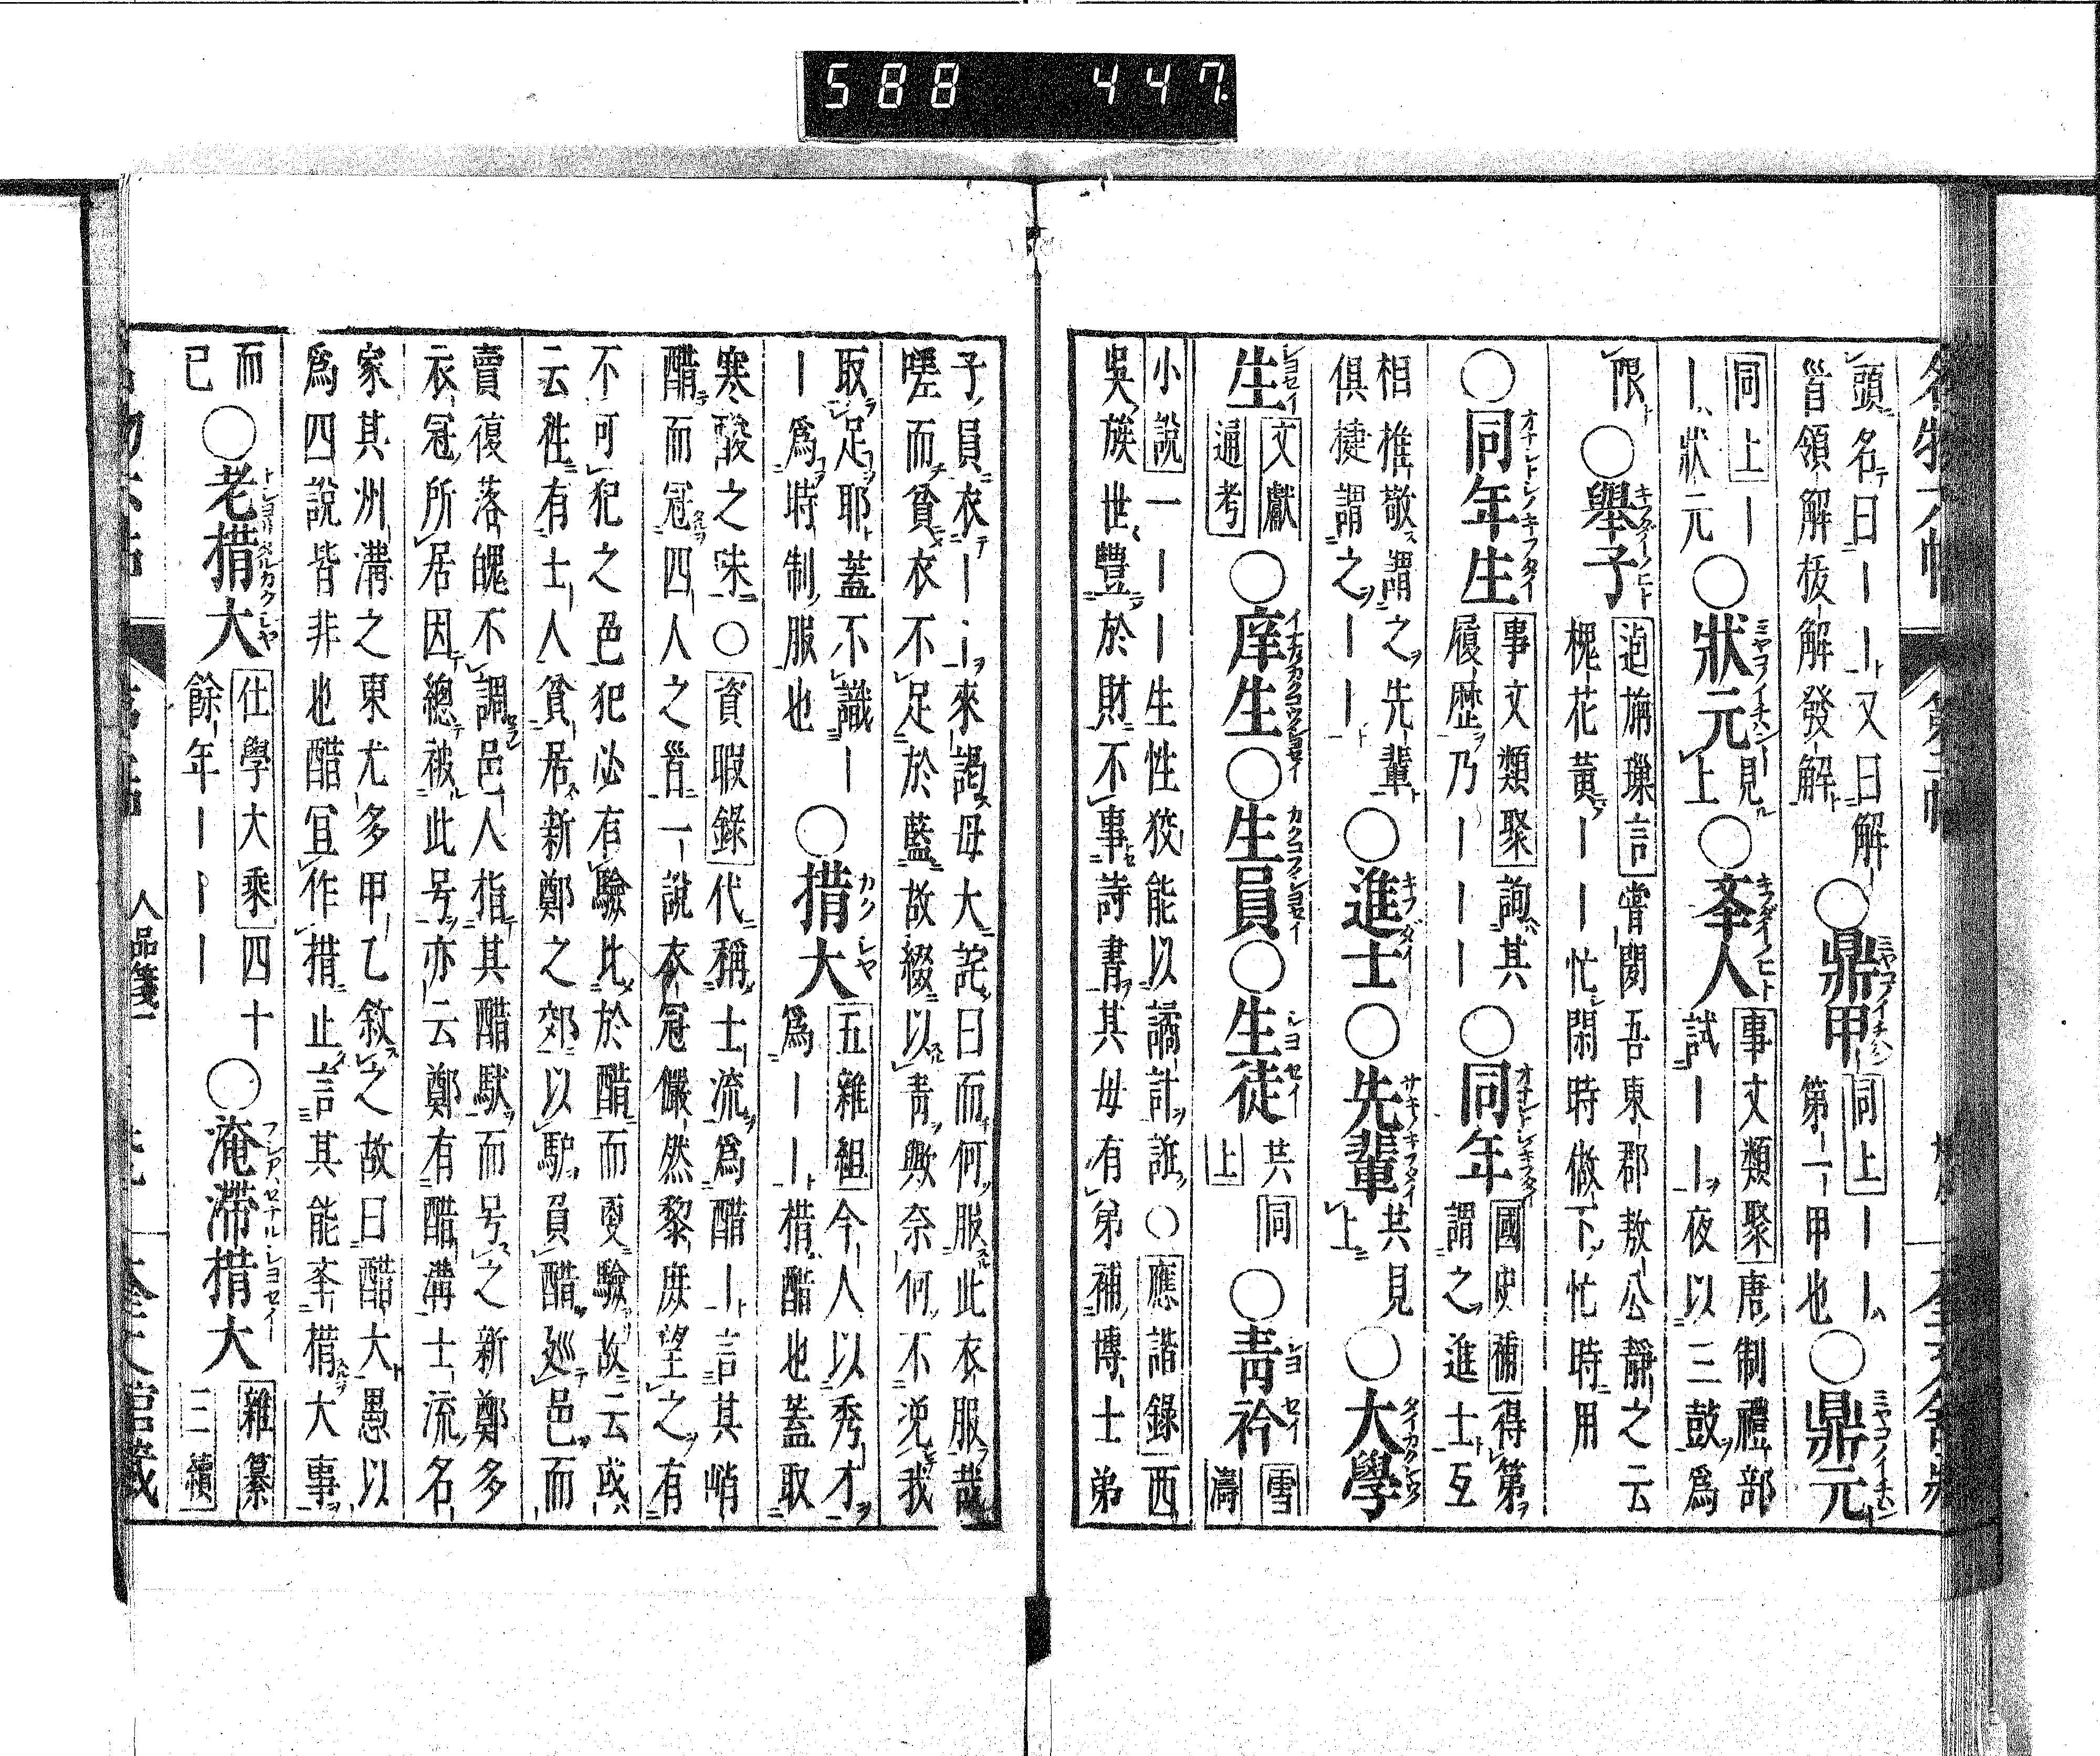 588 447
頭名曰――又曰解
首領解核解發解
○鼎甲
同上――
第一甲也
○鼎元
同上―
―狀元
○狀元
見
上
○夆人
事文類聚唐制禮部
試――夜以三鼓爲
限
○舉子
逌旃璅言嘗聞吾東郡敖公靜之云
槐花黃――忙閑時做下忙時用
○同年生
事文類聚詢其
履歷乃―――
○同年
國史補得第
謂之進士互
相推敬謂之先輩
俱捷謂之――
○進士○先輩
其見
上
○大學
生
文獻
通考
○庠生○生員○生徒
共同
上
○靑衿
雪濤
小說一――生性狡能以譎計誑○應諧錄西
吳族世豐於財不事詩書其母有弟補博士弟
子員衣――來謁母大詫曰而何服此衣服哉
嗟而貧衣不足於藍故綴以青歟奈何不浼我
取足耶蓋不識―
―爲時制服也
○措大
五雜組今人以秀才
爲――措醋也蓋取
寒酸之味○資暇錄代稱士流爲醋―言其峭
醋而冠四人之首一說衣冠儼然黎庶望之有
不可犯之色犯必有驗比於醋而更驗故云或
云徃有士人貧居新鄭之郊以馿負醋巡邑而
賣復落魄不調邑人指其醋馱而号之新鄭多
衣冠所居因總被此号亦云鄭有醋溝士流名
家其州溝之東尤多甲乙敘之故曰醋大愚以
爲四說皆非也醋冝作措止言其能夆措大事
而
已
○老措大
仕學大乘四十
餘年―――
○淹滯措大
雜纂
二續
人品箋一